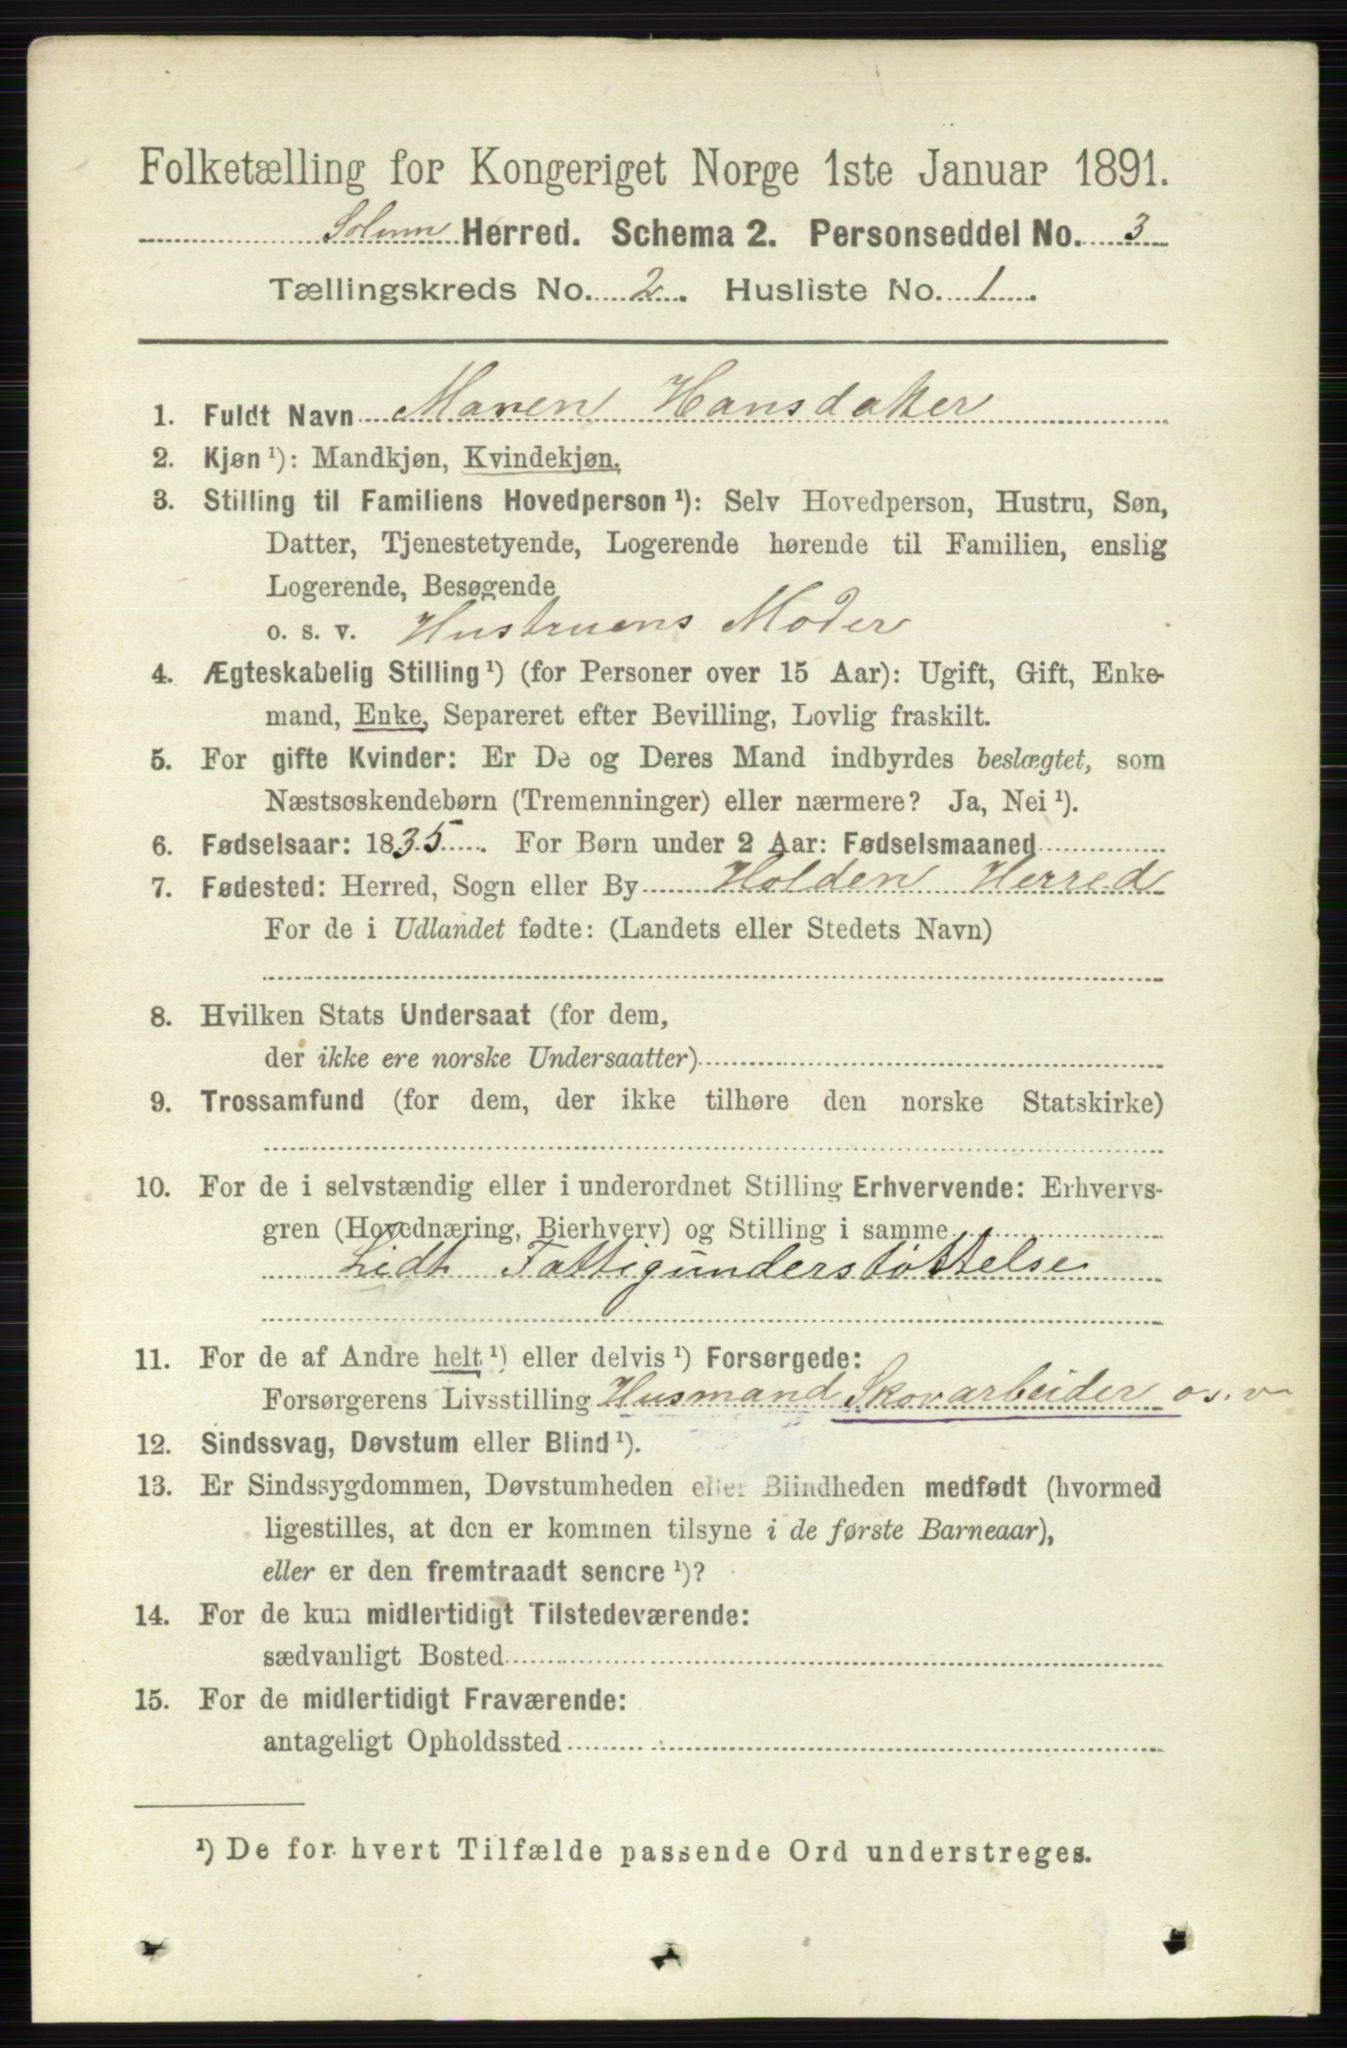 Folketælling for Kongeriget Norge 1ste Januar 1891.
Solum Herred. Schema 2. Personseddel No. 3
Tællingskreds No. 2. Husliste No. 1.
1. Fuldt Navn Maren Hansdatter
2. Kjøn ¹): Mandkjøn, Kvindekjøn.
3. Stilling til Familiens Hovedperson ¹): Selv Hovedperson, Hustru, Søn,
Datter, Tjenestetyende, Logerende hørende til Familien, enslig
Logerende, Besøgende
o. s. v. Hustruens Moder
4. Ægteskabelig Stilling ¹) (for Personer over 15 Aar): Ugift, Gift, Enke-
mand, Enke, Separeret efter Bevilling, Lovlig fraskilt.
5. For gifte Kvinder: Er De og Deres Mand indbyrdes beslægtet, som
Næstsøskendebørn (Tremenninger) eller nærmere? Ja, Nei ¹).
6. Fødselsaar: 1835. For Børn under 2 Aar: Fødselsmaaned
7. Fødested: Herred, Sogn eller By Holden Herred
For de i Udlandet fødte: (Landets eller Stedets Navn)
8. Hvilken Stats Undersaat (for dem,
der ikke ere norske Undersaatter)
9. Trossamfund (for dem, der ikke tilhøre den norske Statskirke)
10. For de i selvstændig eller i underordnet Stilling Erhvervende: Erhvervs-
gren (Hovednæring, Bierhverv) og Stilling i samme
Lidt Fattigunderstøttelse
11. For de af Andre helt ¹) eller delvis ¹) Forsørgede:
Forsørgerens Livsstilling Husmand Skovarbeider o.s.v
12. Sindssvag, Døvstum eller Blind ¹).
13. Er Sindssygdommen, Døvstumheden eller Blindheden medfødt (hvormed
ligestilles, at den er kommen tilsyne i de første Barneaar),
eller er den fremtraadt senere ¹)?
14. For de kun midlertidigt Tilstedeværende:
sædvanligt Bosted
15. For de midlertidigt Fraværende:
antageligt Opholdssted
¹) De for hvert Tilfælde passende Ord understreges.